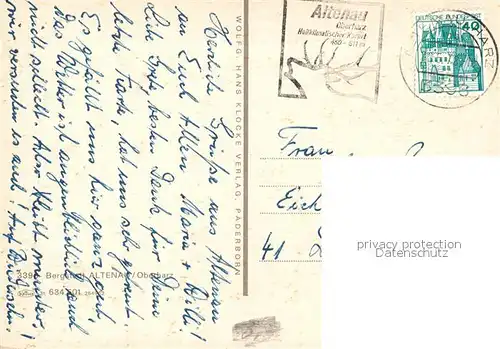 Herzliche Grüße aus Altenau
Euch Allen Maria + Willi!
Lieb Grete besten Dank für Deine
letzte Karte hat uns sehr gefreut.
Es gefällt uns hier ganz gut,
das Wetter ist augenblicklich auch
nicht schlecht. Aber bleibt munter,
wir versuchen es auch!
WOLFG. HANS KLOCKE VERLAG, PADERBORN
3396 Bergstadt ALTENAU/Oberharz
634 601
Altenau
Oberharz
Heilklimatischer Kurort
450 - 900 m
DEUTSCHE BUNDESPOST
40
HARZ
Frau
Eich
41
privacy protection
www.delcampe.net